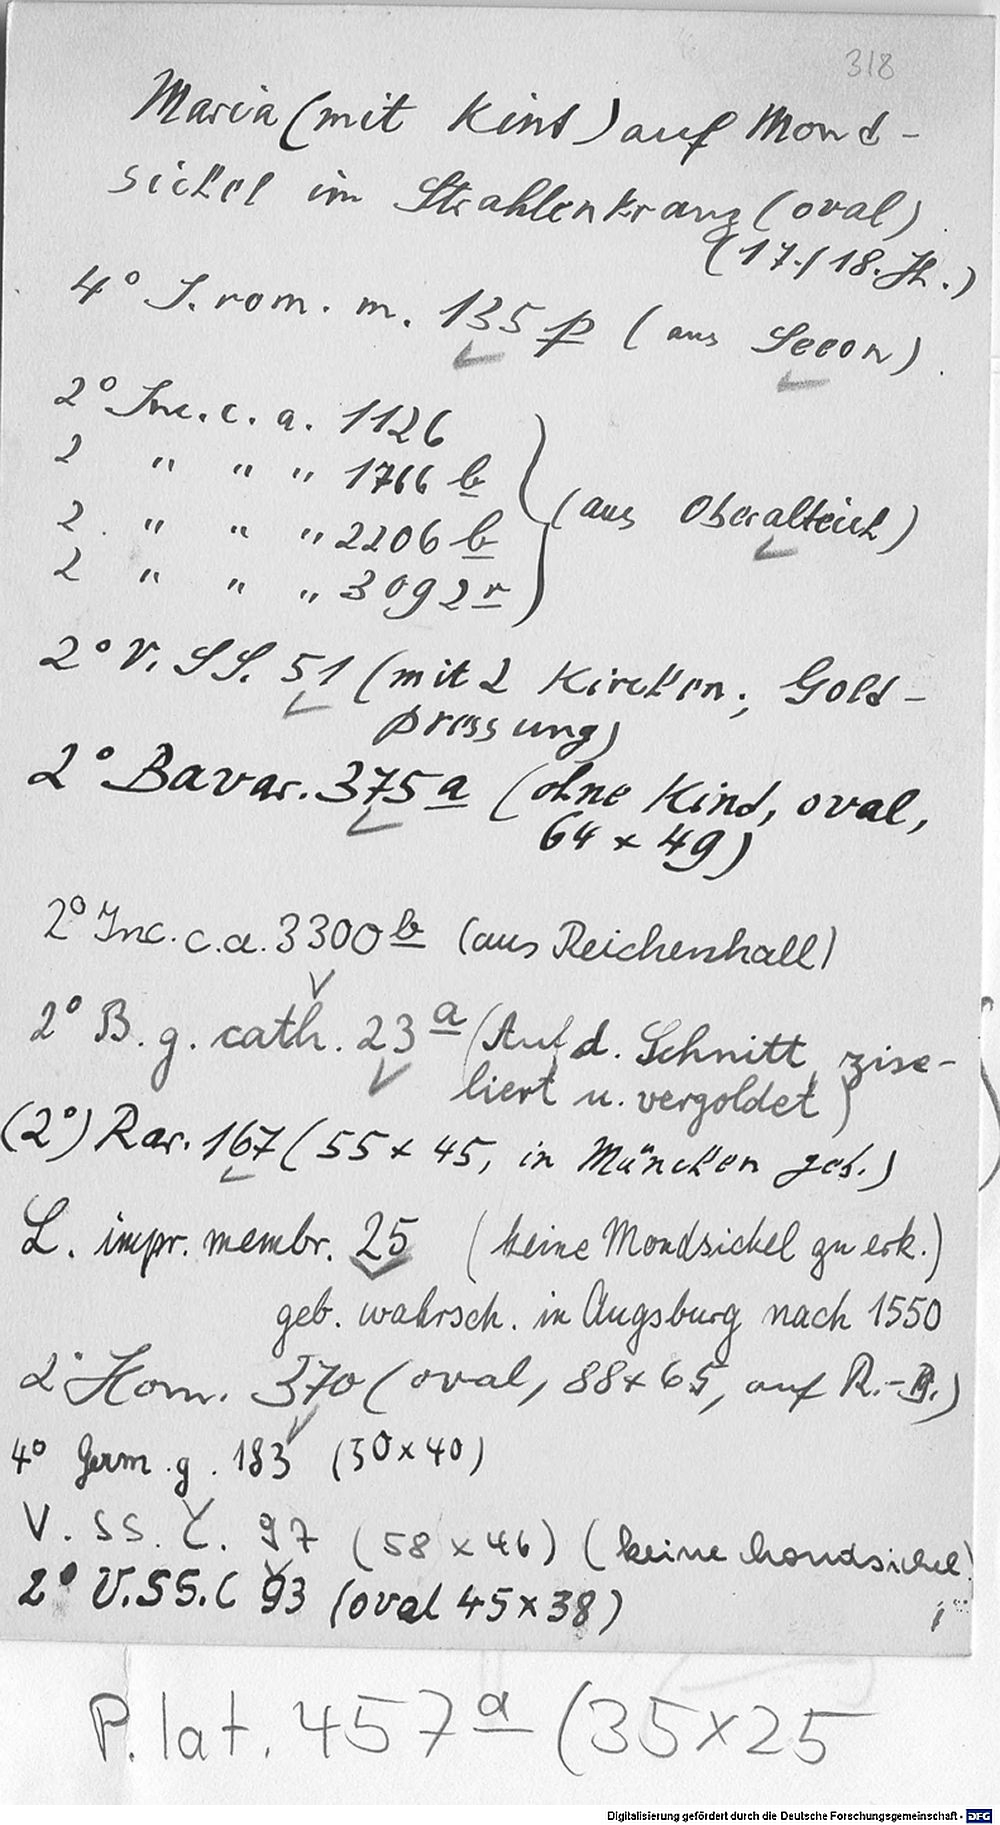 318
Maria (mit Kind) auf Mond-
sichel im Strahlenkranz (oval)
(17./18. Jh.)
4° J. rom. m. 135 p (aus Seeon)
2° Inc. c. a. 1126
2 " " " 1766 b
2 " " " 2206 b (aus Oberalteich)
2 " " " 3092 r
2° V. SS. 51 (mit 2 Kirchen; Gold-
pressung)
2° Bavar. 375 a (ohne Kind, oval,
64 x 49)
2° Inc. c.a. 3300 b (aus Reichenhall)
2° B. g. cath. 23 a (Auf d. Schnitt zise-
liert u. vergoldet)
(2°) Rar. 167 (55 x 45, in München geb.)
L. impr. membr. 25 (keine Mondsichel zu erk.)
geb. wahrsch. in Augsburg nach 1550
2° Hom. 370 (oval, 88 x 65, auf R.-D.)
4° Germ. g. 183 (50 x 40)
V. SS. C. 97 (58 x 46) (keine Mondsichel)
2° V. SS. C 93 (oval 45 x 38)
P. lat. 457 a (35 x 25
Digitalisierung gefördert durch die Deutsche Forschungsgemeinschaft - DFG